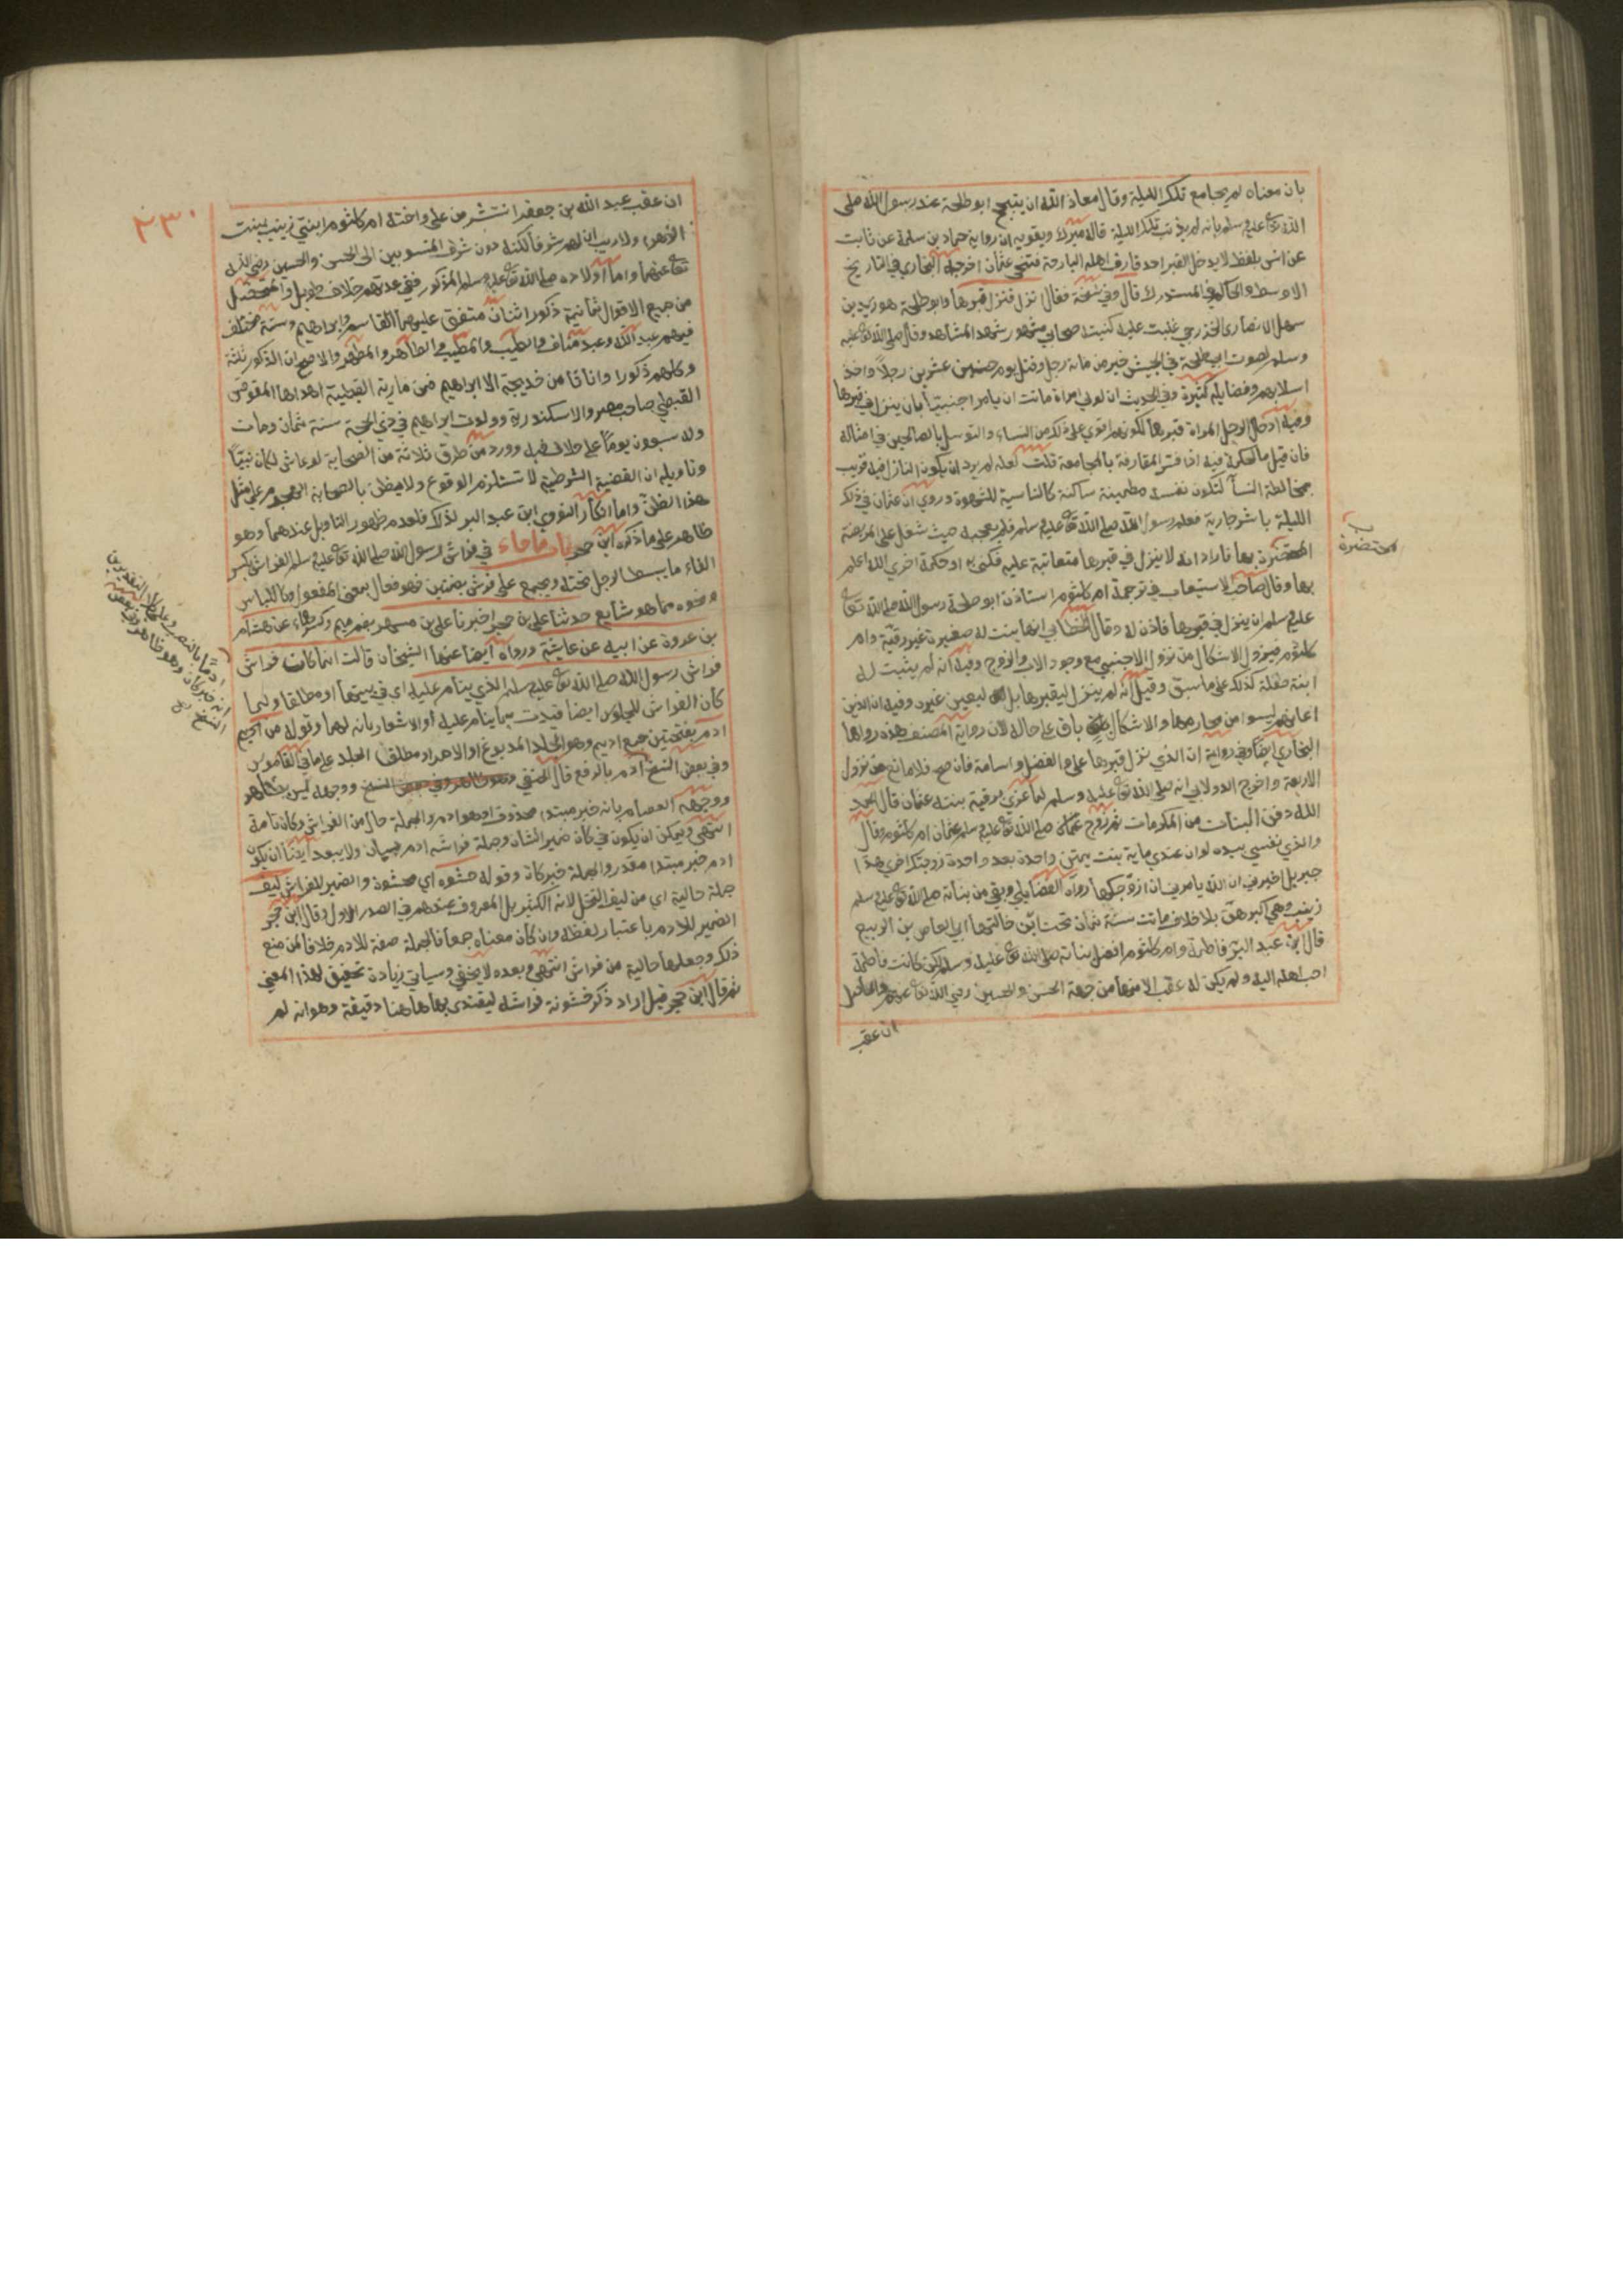 بان معناه لم يجامع تلك الليلة وقال معاذ الله ان يتبجح ابو طلحة عند رسول الله صلى
الله تع عليه وسلم بانه لم يذنب تلك الليلة قاله ميرك ويقويه ان رواية حماد بن سلمة عن ثابت
عن انس بلفظ لا يدخل القبر احد قارف اهله البارحة فتنحى عثمان اخرجه البخاري في التاريخ
الاوسط والحاكم في المستدرك قال وفي نسخة فقال نزل فنزل قبرها وابو طلحة هو زيد بن
سهل الانصاري الخزرجي غلبت عليه كنيته صحابي مشهور شهد المشاهد وقال صلى الله تع عليه
وسلم لصوت ابي طلحة في الجيش خير من مائة رجل وقتل يوم حنين عشرين رجلا واخذ
اسلابهم وفضايله كثيرة وفي الحديث ان لولي امراة ماتت ان يامر اجنبيا بان ينزل في قبرها
وفيه ادخال الرجل المراة قبرها لكونهم اقوى على ذلك من النساء والتوسل بالصالحين في امثاله
فان قيل ما الحكمة فيه اذا فسر المقارفة بالمجامعة قلت لعله لم يرد ان يكون النازل فيه قريب
مخالطة النسا لتكون نفسه مطمينة ساكنة كالناسية للشهوة وروي ان عثمان في تلك
الليلة باشر جارية فعلم رسول الله صلى الله تع عليه وسلم فلم يعجبه حيث شغل على المريضة
المحتضرة بها فاراد انه لا ينزل في قبرها معاتبة عليه فكنى به او حكمة اخرى الله اعلم
بها وقال صاحب الاستيعاب في ترجمة ام كلثوم استاذن ابو طلحة رسول الله صلى الله تع
عليه وسلم ان ينزل في قبرها فاذن له وقال الخطابي انها بنت له صغيرة غير رقية وام
كلثوم فيزول الاشكال من نزول الاجنبي مع وجود الاب والزوج وفيه انه لم يثبت له
ابنة طفلة كذلك على ما سبق وقيل انه لم ينزل ليقبرها بل ليعين غيره وفيه ان الذين
اعانهم ليسوا من محارمها والاشكال باق على حاله لان رواية المصنف هذه رواها
البخاري ايضا وفي رواية ان الذي نزل قبرها علي والفضل واسامة فان صح فلا مانع من نزول
الاربعة واخرج الدولابي انه صلى الله تع عليه وسلم لما عزي برقية بنته عثمان قال الحمد
الله دفن البنات من المكرمات ثم زوج عثمان صلى الله تع عليه وسلم عثمان ام كلثوم وقال
والذي نفسي بيده لو ان عندي ماية بنت يمتن واحدة بعد واحدة زوجتك اخرى هذا
جبريل اخبرني ان الله يامرني ان ازوجكها رواه الفضايلي وبقي من بناته صلى الله تع عليه وسلم
زينب وهي اكبرهن بلا خلاف ماتت سنة ثمان تحت ابن خالتها ابي العاص بن الربيع
قال ابن عبد البر فاطمة وام كلثوم افضل بناته صلى الله تع عليه وسلم لكن كانت فاطمة
احب اهله اليه ولم يكن له عقب الا منها من جهة الحسن والحسين رضي الله تع عنهم والحاصل
ان عقب
المحتضرة
٢٣٠
ان عقب عبد الله بن جعفر انتشر من علي واخته ام كلثوم ابنتي زينب بنت
الزهرا ولا ريب ان لهم شرفا لكنه دون شرف المنسوبين الى الحسن والحسين رضي الله
تع عنهما واما اولاده صلى الله تع عليه وسلم الذكور ففي عدتهم خلاف طويل والمتحصل
من جميع الاقوال ثمانية ذكور اثنان متفق عليهما القاسم وابراهيم وستة مختلف
فيهم عبد الله وعبد مناف والطيب والمطيب والطاهر والمطهر والاصح ان الذكور ثلثة
وكلهم ذكورا واناثا من خديجة الا ابراهيم فمن مارية القبطية اهداها المقوقس
القبطي صاحب مصر والاسكندرية وولدت ابراهيم في ذي الحجة سنة ثمان ومات
وله سبعون يوما على خلاف فيه وورد من طرق ثلاثة من الصحابة لو عاش لكان نبيا
وتاويله ان القضية الشرطية لا تستلزم الوقوع ولا يظن بالصحابة الهجوم على مثل
هذا الظن واما انكار النووي ابن عبد البر لذلك فلعدم ظهور التاويل عندهما وهو
ظاهر على ما ذكره ابن حجر باب ما جاء في فراش رسول الله صلى الله تع عليه وسلم الفراش بكسر
الفاء ما يبسط الرجل تحته ويجمع على فرش بضمتين فهو فعال بمعنى المفعول كاللباس
ونحوه مما هو شايع حدثنا علي بن حجر اخبرنا علي بن مسهر بضم ميم وكسر هاء عن هشام
بن عروة عن ابيه عن عايشة ورواه ايضا عنها الشيخان قالت انما كان فراش
فراش رسول الله صلى الله تع عليه وسلم الذي ينام عليه اي في بيتها او مطلقا ولما
كان الفراش للجلوس ايضا قيدت بما ينام عليه او الاشعار بانه لهما وقوله من ادم
ادم بفتحتين جمع اديم وهو الجلد المدبوغ او الاحمر او مطلق الجلد على ما في القاموس
وفي بعض النسخ ادم بالرفع قال الحنفي ووجهه ليس بظاهر
ووجهه العصام بانه خبر مبتدا محذوف اي هو ادم والجملة حال من الفراش وكان تامة
انتهى ويمكن ان يكون في كان ضمير الشان وجملة فراشه ادم مبيان ولا يبعد ايضا ان يكون
ادم خبر مبتدا مقدر والجملة خبر كان وقوله حشوه اي محشوه والضمير للفراش ليف
جملة حالية اي من ليف النخل لانه الكثير بل المعروف عندهم في الصدر الاول وقال ابن حجر
الضمير للادم باعتبار لفظه وان كان معناه جمعا فالجملة صفة للادم خلافا لمن منع
ذلك وجعلها حالية من فراش انتهى وبعده لا يخفى وسياتي زيادة تحقيق لهذا المعنى
ثم قال ابن حجر قيل اراد ذكر خشونة فراشه ليقتدى بها هاهنا دقيقة وهو انه لم
ادما بالنصب وعلى كلا التقديرين
انه خبر كان وهو ظاهر وفي بعض
النسخ صح